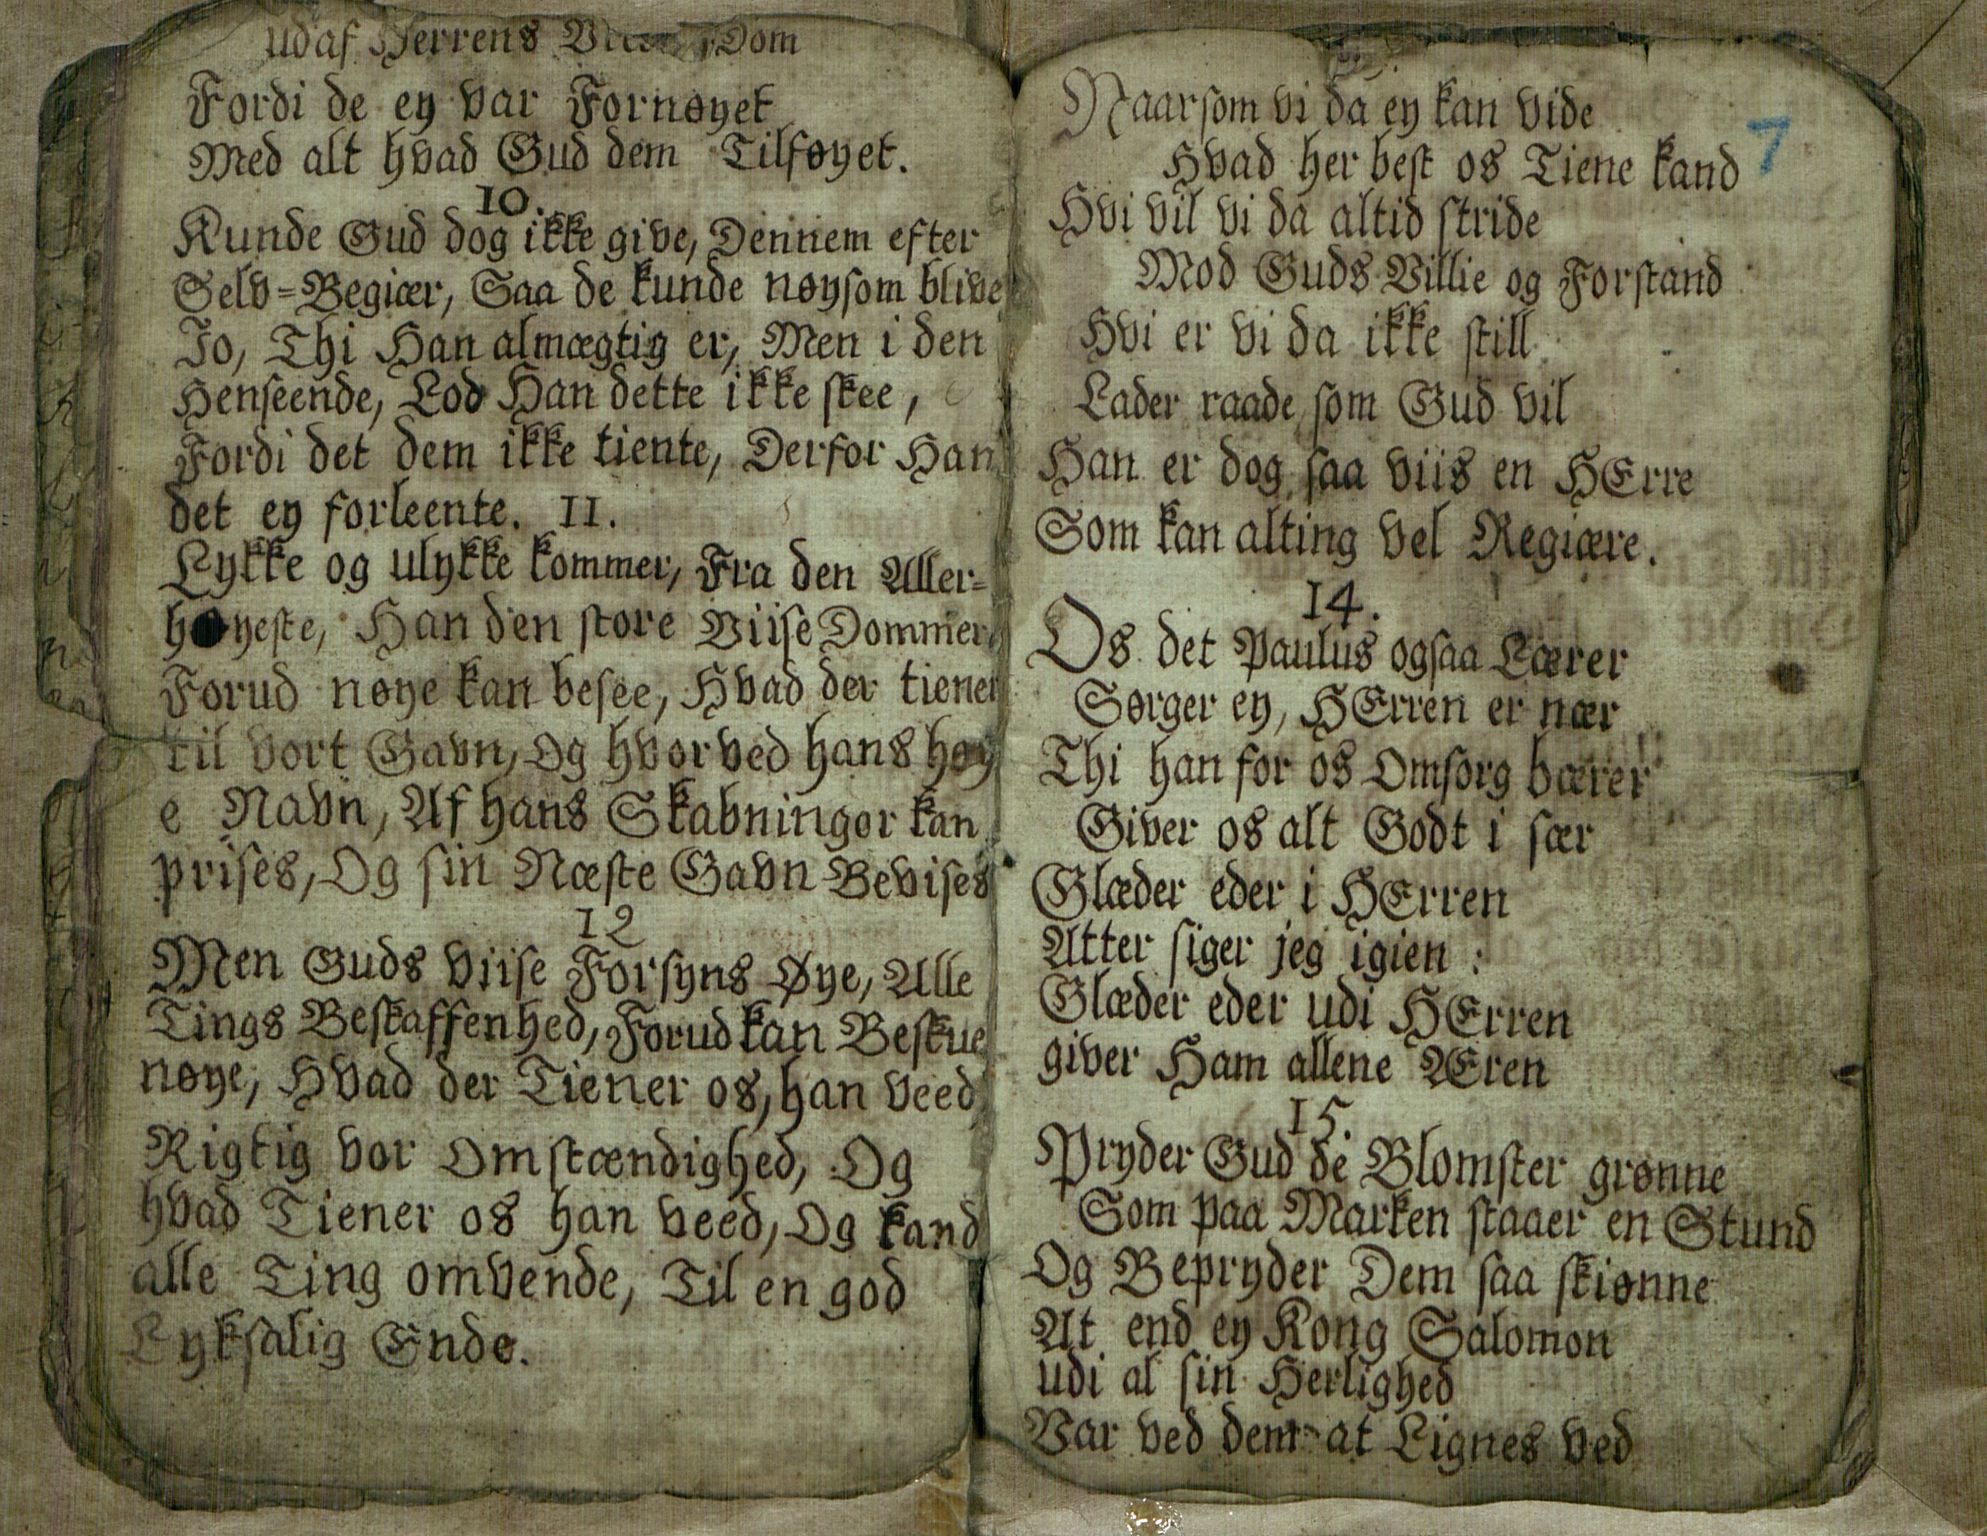 udaf Herrens Dom
Fordi de ey var Fornøyet
Med alt hvad Gud dem Tilføyet.
10.
Kunde Gud dog ikke give, Dennem efter
Selv=Begiær, Saa de kunde nøysom blive,
Jo, Thi Han almægtig er, Men i den
Henseende, Lod Han dette ikke skee,
Fordi det dem ikke tiente, Derfor Han
det ey forleente. 11.
Lykke og ulykke kommer, Fra den Aller=
høyeste, Han den store Viise Dommer,
Forud nøye kan besee, Hvad der tiener
til vort Gavn, Og hvorved hans høy
e Navn, Af hans Skabninger kan
prises, Og sin Næste Gavn Bevises
12
Men Guds Viise Forsyns Øye, Alle
Tings Beskaffenhed, Forud kan Beskue
nøye, Hvad der Tiener os, han veed,
Rigtig vor Omstændighed, Og
hvad Tiener os han veed, Og kand
alle Ting omvende, Til en god
Lyksalig Ende.
7
Naarsom vi da ey kan vide
Hvad her best os Tiene kand
Hvi vil vi da altid stride
Mod Guds Villie og Forstand
Hvi er vi da ikke still
Lader raade som Gud vil
Han er dog saa viis en HErre
Som kan alting vel Regiære.
14.
Os det Paulus ogsaa Lærer
Sørger ey, HErren er nær
Thi han for os Omsorg bærer
Giver os alt Godt i sær
Glæder eder i HErren
Atter siger jeg igien :
Glæder eder udi HErren
giver Ham allene Æren
15.
Pryder Gud de Blomster grønne
Som paa Marken staaer en Stund
Og Bepryder Dem saa skiønne
At end ey Kong Salomon
udi al sin Herlighed
Var ved dem at Lignes ved